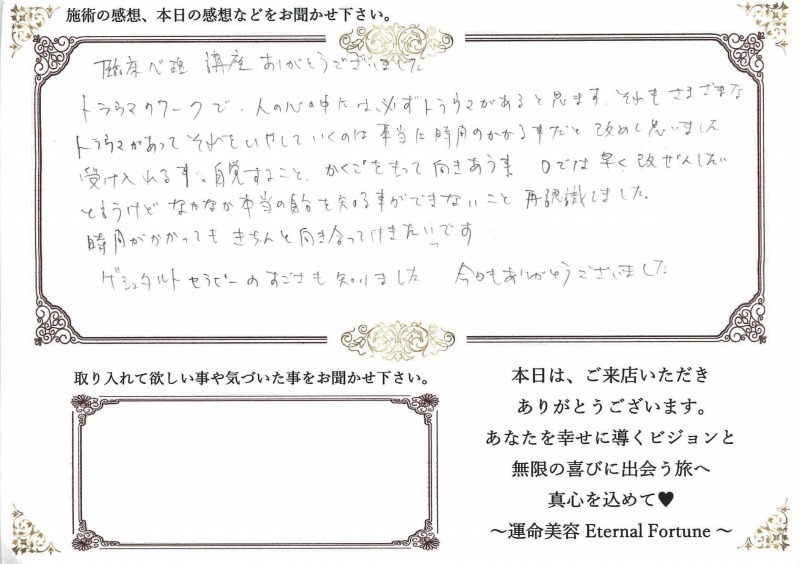 施術の感想、本日の感想などをお聞かせ下さい。
臨床心理 講座 ありがとうございました
トラウマのワークで、人の心の中には必ずトラウマがあると思ます それもさまざまな
トラウマがあって それをいやしていくのは 本当に時間のかかる事だと 改めて思いました
受け入れる事、自覚すること、かくごをもって向きあう事 口では早く改ぜんしたい
と言うけど なかなか本当の自分を知る事ができないこと 再認識しました。
時間がかかっても きちんと向き合って行きたいです
ゲシュタルトセラピーのすごさも知りました 今日もありがとうございました
取り入れて欲しい事や気づいた事をお聞かせ下さい。
本日は、ご来店いただき
ありがとうございます。
あなたを幸せに導くビジョンと
無限の喜びに出会う旅へ
真心を込めて♥
～運命美容 Eternal Fortune ～